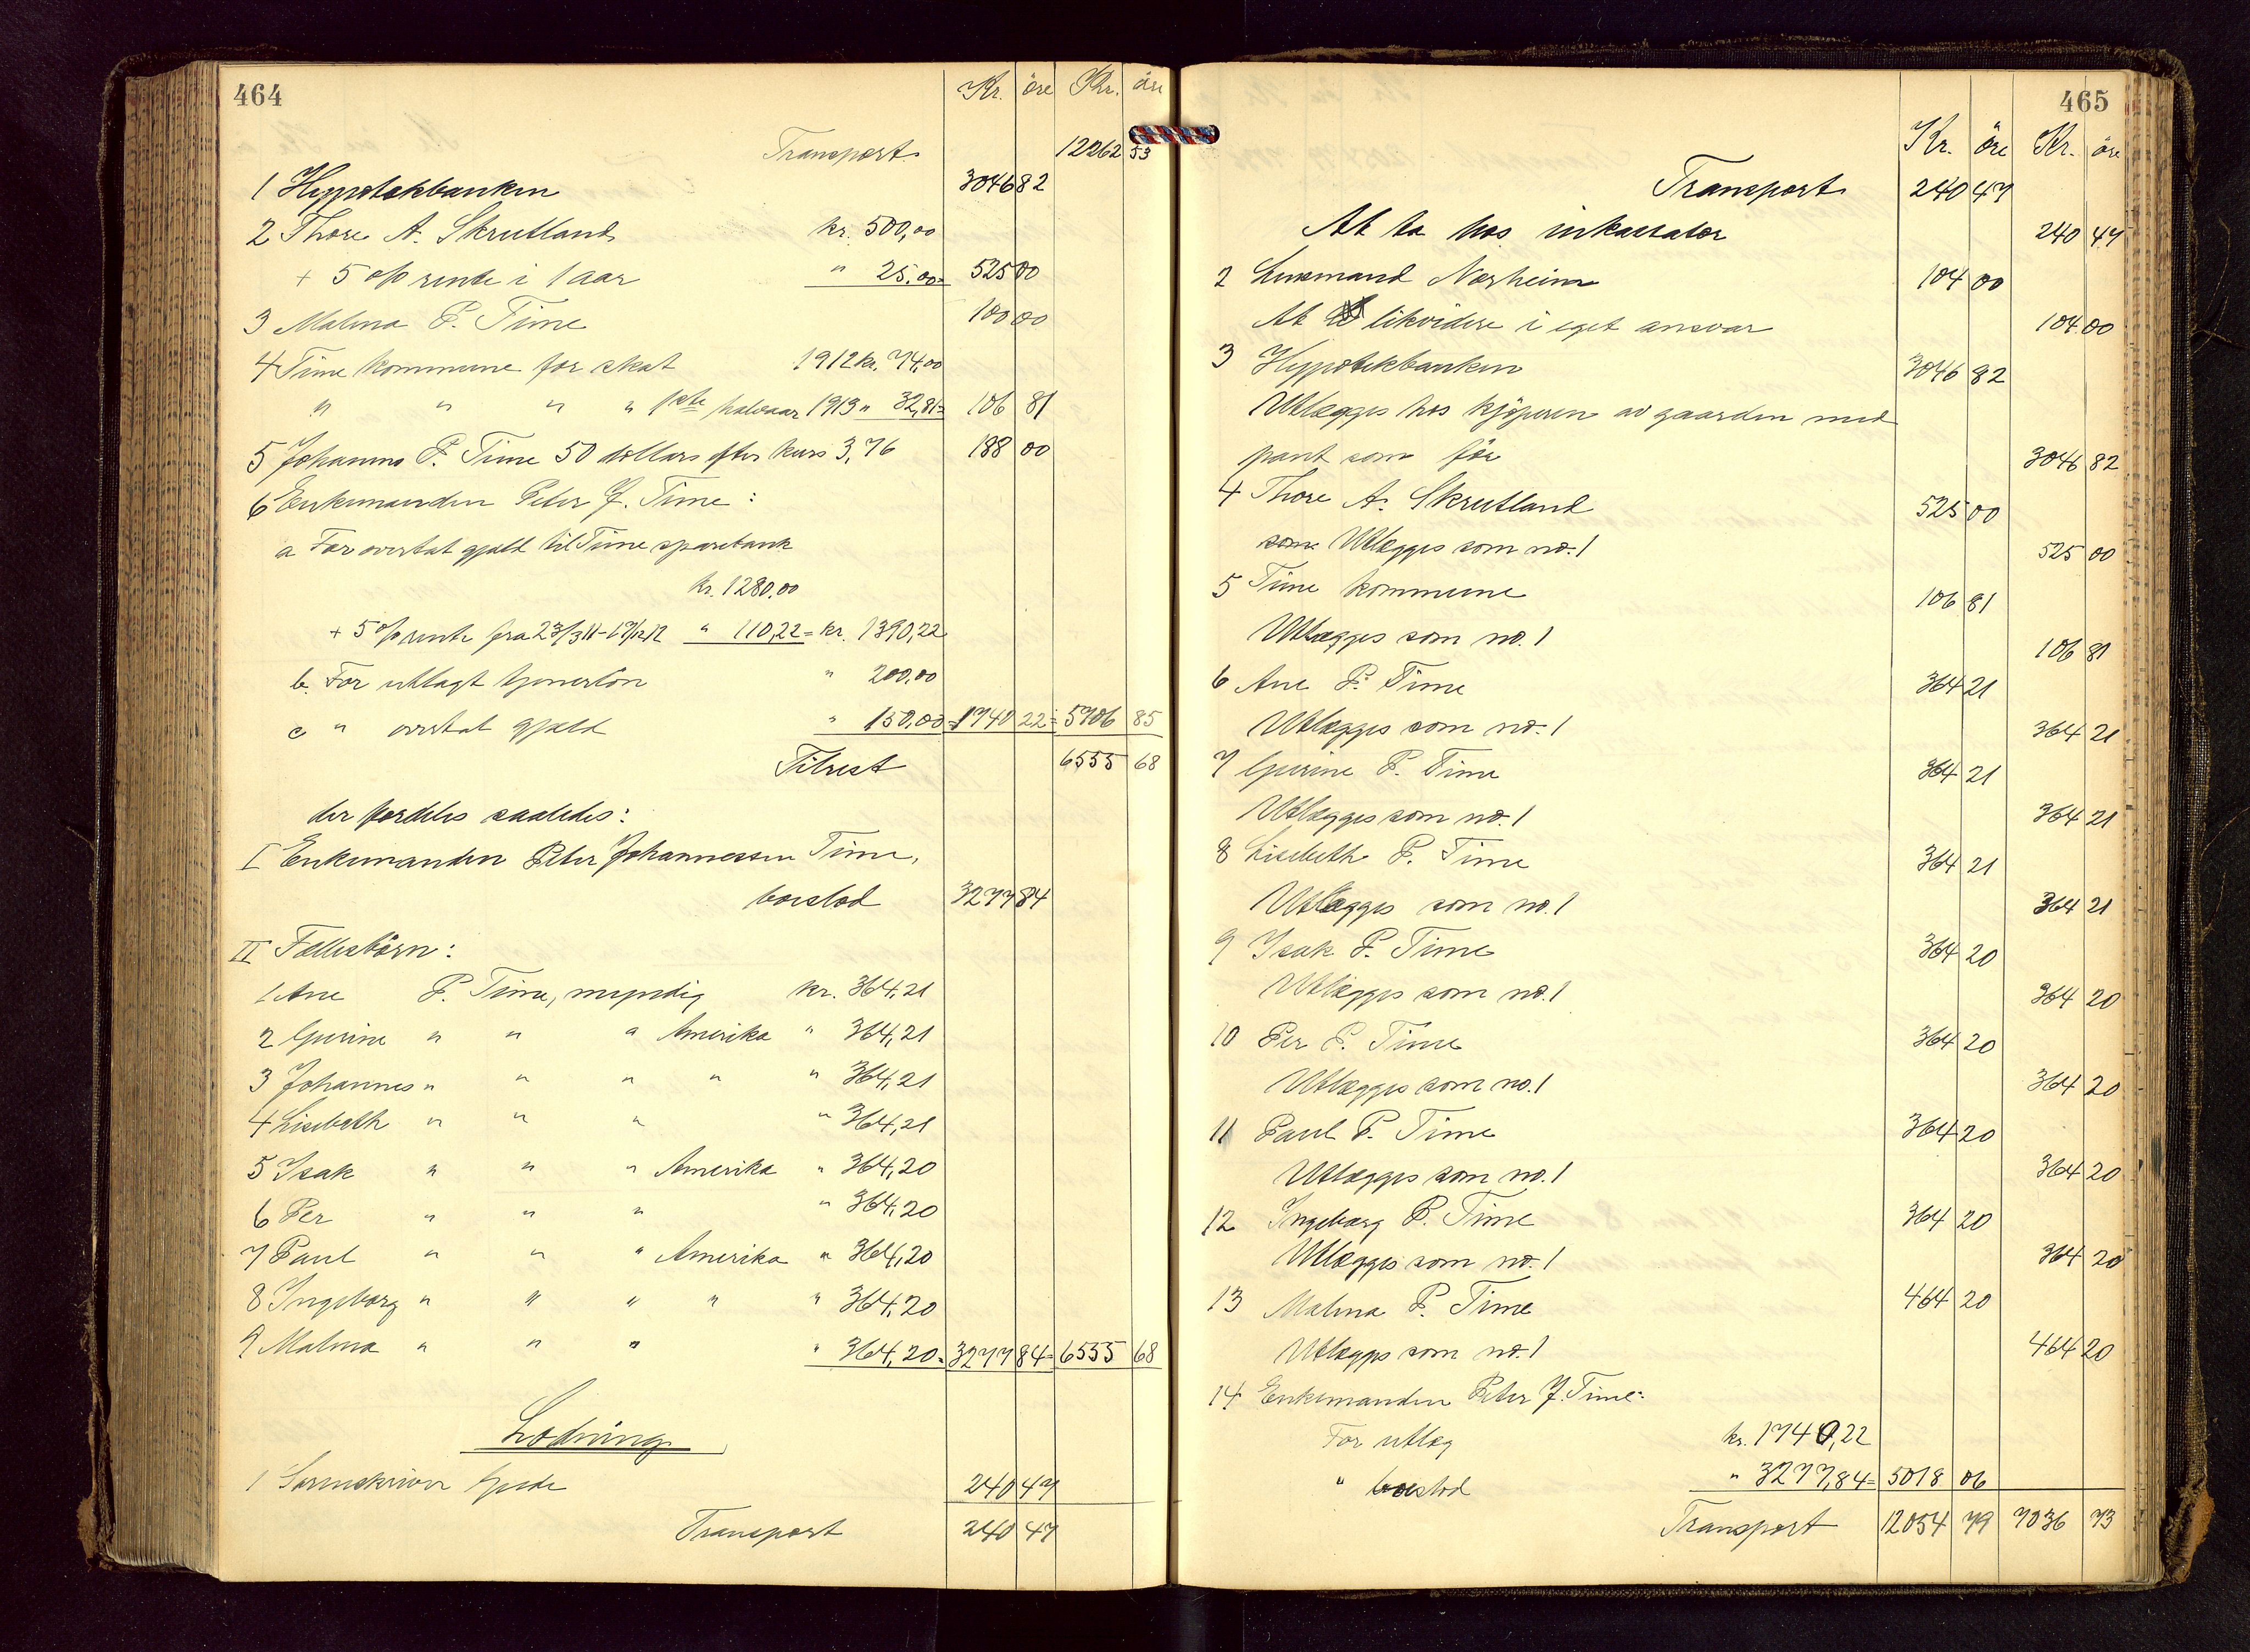 464
Kr. öre Kr. öre
Transport 12262 53
1 Hypotekbanken 3046 82
2 Thore A. Skrutland kr. 500,00
+ 5 o/o rente i 1 aar " 25.00= 525 00
3 Malena P. Time 100 00
4 Time kommune for skat 1912 kr. 74,00
" " " " 1ste halvaar 1913 " 32,81= 106 81
5 Johannes P. Time 50 dollars efter kurs 3,76 188 00
6 Enkemanden Peter J. Time:
a For overtat gjæld til Time sparebank
kr. 1280.00
+ 5 o/o rente fra 23/3 11 - 17/12 12 " 110,22 = kr. 1390,22
b. For utlagt tjenerlön " 200,00
c " overtat gjæld " 150,00= 1740 22= 5706 85
Tilrest 6555 68
der fordeles saaledes:
I Enkemanden Peter Johannessen Time,
boeslod 3277 84
II Fællesbörn:
1 Ane P. Time, myndig kr. 364,21
2 Gurine " " " Amerika " 364,21
3 Johannes " " " " " 364,21
4 Lisebeth " " " " 364,21
5 Isak " " " Amerika " 364,20
6 Per " " " " 364,20
7 Paul " " " Amerika " 364,20
8 Ingeborg " " " " " 364,20
9 Malena " " " " 364,20= 3277 84= 6555 68
Lodning
1 Sorenskriver Gjede 240 47
Transport 240 47
465
Kr. öre Kr. öre
Transport 240 47
At ta hos inkassator 240 47
2 Lensmand Norheim 104 00
At likvidere i eget ansvar 104 00
3 Hypotekbanken 3046 82
Utlægges hos kjöperen av gaarden med
pant som för 3046 82
4 Thore A. Skrutland 525 00
som Utlægges som no. 1 525 00
5 Time kommune 106 81
Utlægges som no. 1 106 81
6 Ane P. Time 364 21
Utlægges som no. 1 364 21
7 Gurine P. Time 364 21
Utlægges som no. 1 364 21
8 Lisebeth P. Time 364 21
Utlægges som no. 1 364 21
9 Isak P. Time 364 20
Utlægges som no. 1 364 20
10 Per P. Time 364 20
Utlægges som no. 1 364 20
11 Paul P. Time 364 20
Utlægges som no. 1 364 20
12 Ingeborg P. Time 364 20
Utlægges som no. 1 364 20
13 Malena P. Time 464 20
Utlægges som no. 1 464 20
14 Enkemanden Peter J. Time:
For utlæg kr. 1740,22
" boeslod " 3277,84= 5018 06
Transport 12054 79 7036 73